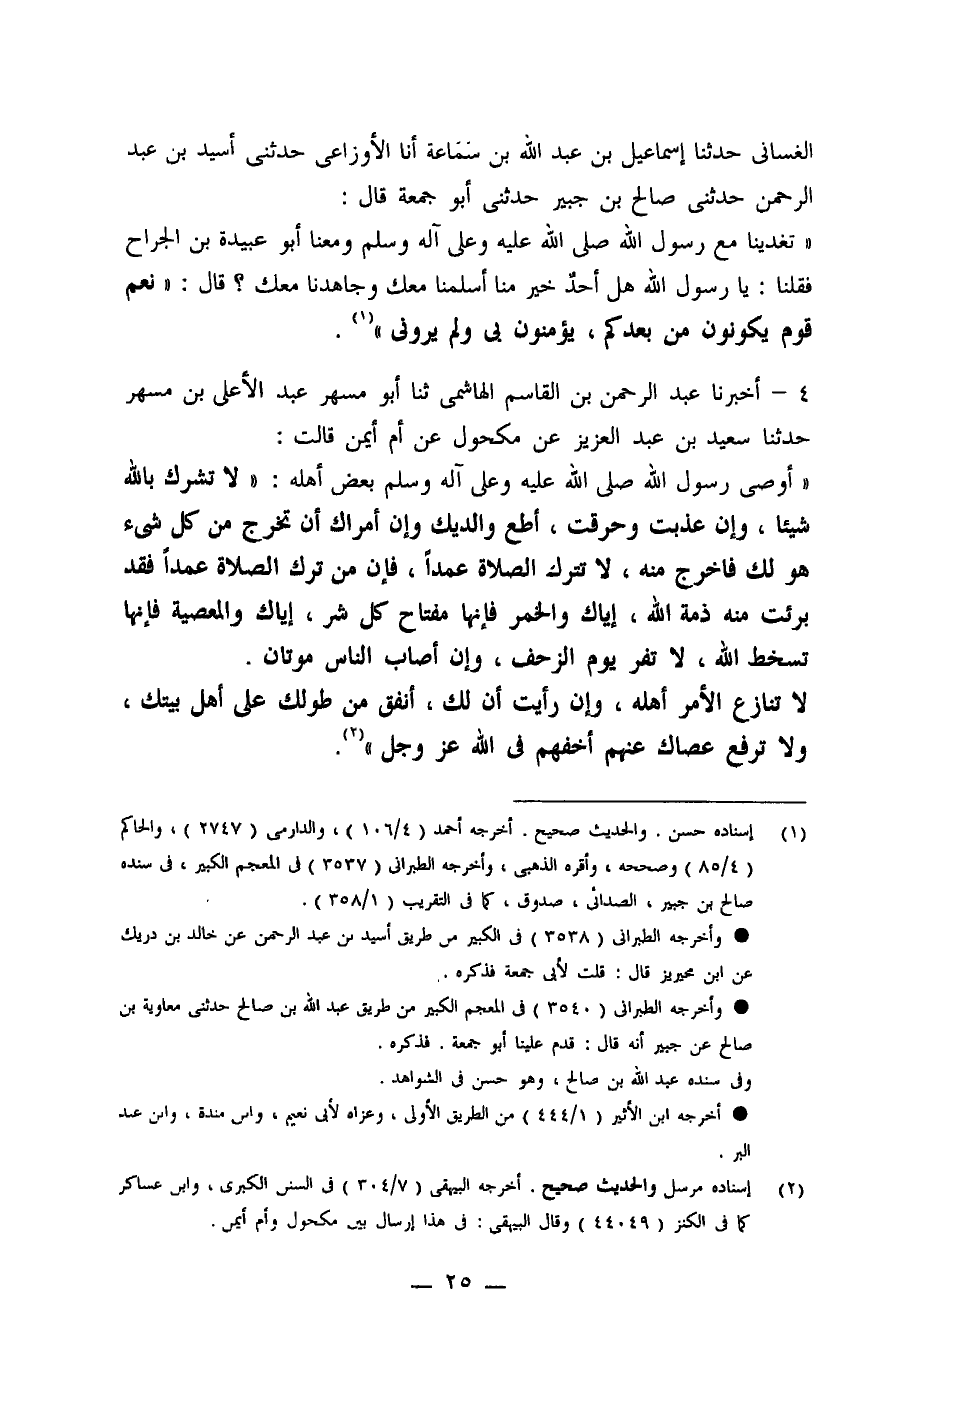 الغسانى حدثنا إسماعيل بن عبد الله بن سَمَاعة أنا الأوزاعى حدثنى أسيد بن عبد
الرحمن حدثنى صالح بن جبير حدثنى أبو جمعة قال :
« تغدينا مع رسول الله صلى الله عليه وعلى آله وسلم ومعنا أبو عبيدة بن الجراح
فقلنا : يا رسول الله هل أحدٌ خير منا أسلمنا معك وجاهدنا معك ؟ قال : « نعم
قوم يكونون من بعدكم ، يؤمنون بى ولم يرونى »(١) .
٤ – أخبرنا عبد الرحمن بن القاسم الهاشمى ثنا أبو مسهر عبد الأعلى بن مسهر
حدثنا سعيد بن عبد العزيز عن مكحول عن أم أيمن قالت :
« أوصى رسول الله صلى الله عليه وعلى آله وسلم بعض أهله : « لا تشرك بالله
شيئا ، وإن عذبت وحرقت ، أطع والديك وإن أمراك أن تخرج من كل شىء
هو لك فاخرج منه ، لا تترك الصلاة عمداً ، فإن من ترك الصلاة عمداً فقد
برئت منه ذمة الله ، إياك والخمر فإنها مفتاح كل شر ، إياك والمعصية فإنها
تسخط الله ، لا تفر يوم الزحف ، وإن أصاب الناس موتان .
لا تنازع الأمر أهله ، وإن رأيت أن لك ، أنفق من طولك على أهل بيتك ،
ولا ترفع عصاك عنهم أخفهم فى الله عز وجل »(٢).
(١) إسناده حسن . والحديث صحيح . أخرجه أحمد ( ١٠٦/٤ ) ، والدارمى ( ٢٧٤٧ ) ، والحاكم
( ٨٥/٤ ) وصححه ، وأقره الذهبى ، وأخرجه الطبرانى ( ٣٥٣٧ ) فى المعجم الكبير ، فى سنده
صالح بن جبير ، الصدائى ، صدوق ، كما فى التقريب ( ٣٥٨/١ ) .
● وأخرجه الطبرانى ( ٣٥٣٨ ) فى الكبير من طريق أسيد بن عبد الرحمن عن خالد بن دريك
عن ابن محيريز قال : قلت لأبى جمعة فذكره .
● وأخرجه الطبرانى ( ٣٥٤٠ ) فى المعجم الكبير من طريق عبد الله بن صالح حدثنى معاوية بن
صالح عن جبير أنه قال : قدم علينا أبو جمعة . فذكره .
وفى سنده عبد الله بن صالح ، وهو حسن فى الشواهد .
● أخرجه ابن الأثير ( ٤٤٤/١ ) من الطريق الأولى ، وعزاه لأبى نعيم ، وابن مندة ، وابن عبد
البر .
(٢) إسناده مرسل والحديث صحيح . أخرجه البيهقى ( ٣٠٤/٧ ) فى السنن الكبرى ، وابن عساكر
كما فى الكنز ( ٤٤٠٤٩ ) وقال البيهقى : فى هذا إرسال بين مكحول وأم أيمن .
— ٢٥ —